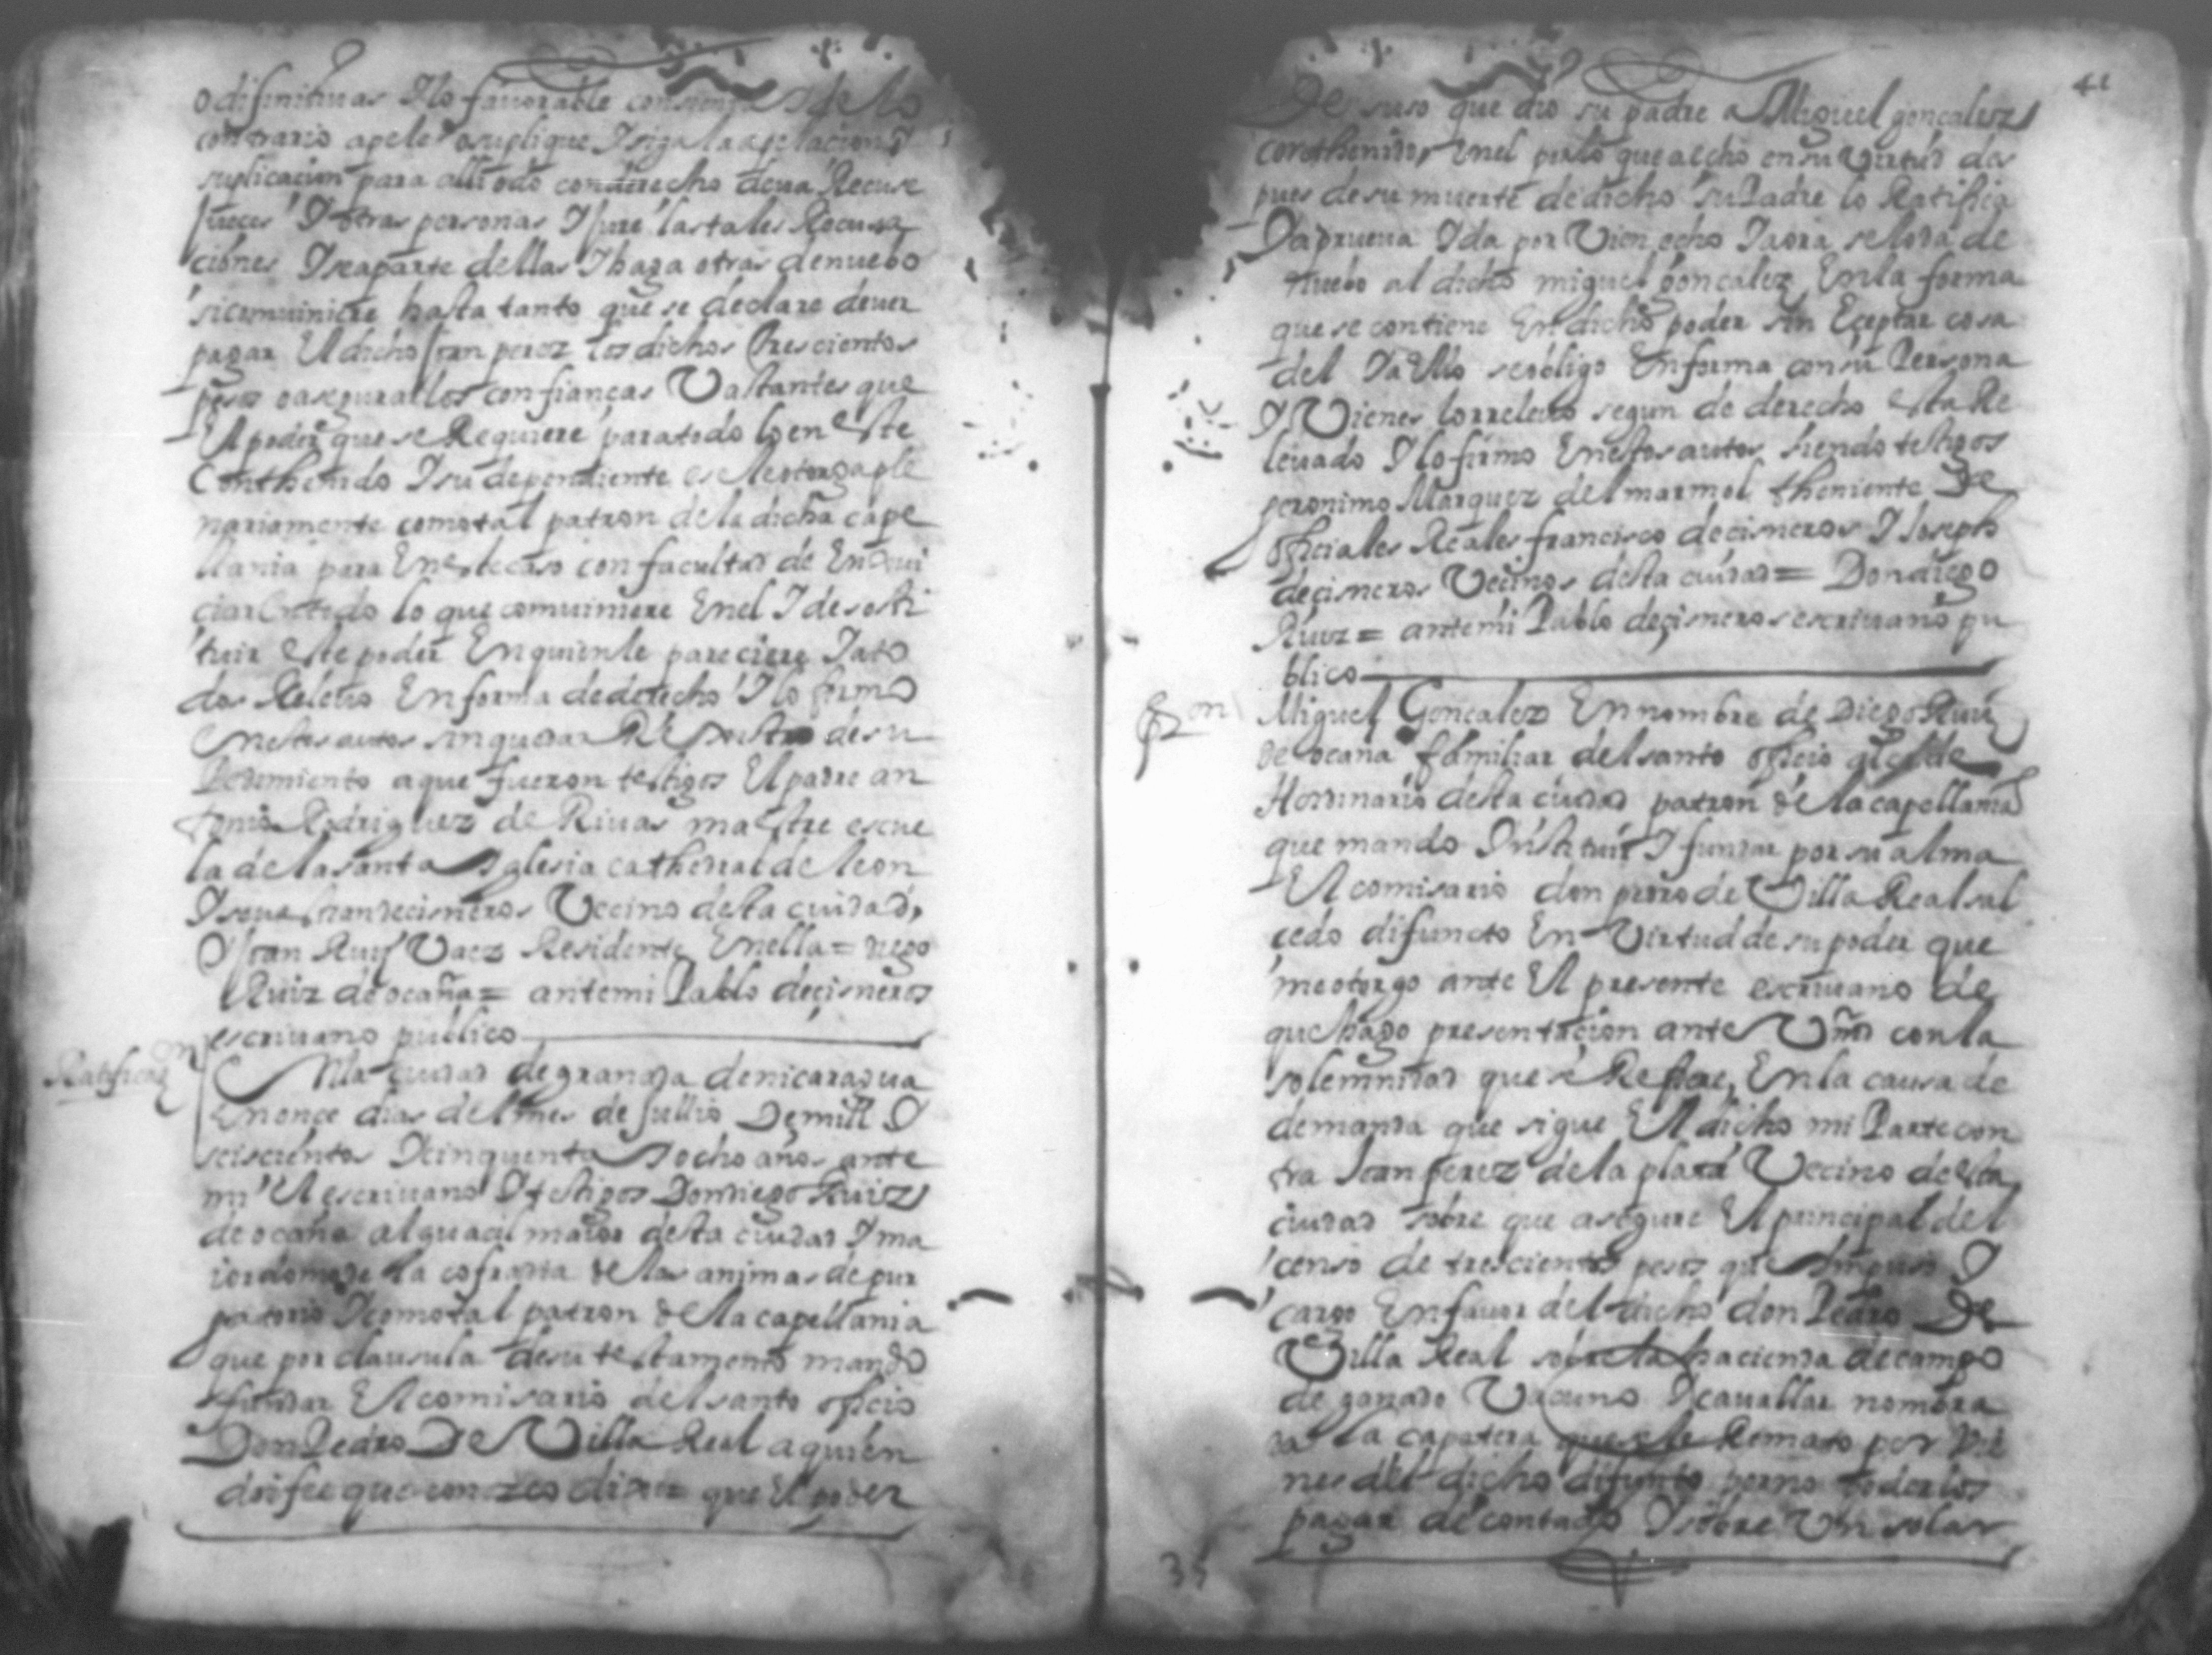 o difinitiuas I lo fauorable consienta I de lo
contrario apele o suplique I siga la apelacion I
suplicacion para alli o do con derecho deua Recuse
Jueces I otras personas I Jure las tales Recusa
ciones I se aparte dellas I haga otras de nuebo
si comuiniere hasta tanto que se declare deuer
pagar El dicho Joan perez los dichos trescientos
pesos o asegurallos con fianças Vastantes que
El poder que se Requiere para todo lo en este
Conthenido I su dependiente ese le otorga ple
nariamente como tal patron de la dicha cape
llania para En este caso con facultad de Enjui
ciar En todo lo que comuiniere En el I de sosti
tuir este poder En quien le pareciere I a to
dos Releuo En forma de derecho I lo firmo
En estos autos sin quedar Rexistro de su
Pedimiento a que fueron testigos El padre an
tonio Rodriguez de Riuas maestre escue
la de la santa Iglesia cathedral de leon
decisneros Vecino desta ciudad,
I Joan Ruiz Vaez Residente En ella = diego
Ruiz de ocaña = ante mi Pablo de çisneros
escriuano publico
Ratificaçon
En la ciudad de granada de nicaragua
En onçe dias del mes de Jullio De mill I
seiscientos I cinquenta I ocho años ante
mi El escriuano I testigos Don diego Ruiz
de ocaña alguacil maior desta ciudad I ma
iordomo de la cofradia de las animas de pur
gatorio I como tal patron de la capellania
que por clausula de su testamento mando
fundar El comisario del santo oficio
Don Pedro De Villa Real a quien
doi fee que conozco dixo = que El poder
41
De suso que dio su padre a Miguel gonçalez
conthenido, En el pleito que a echo en su Virtud des
pues de su muerte de dicho su Padre lo Ratifica
I aprueua I da por Vien echo I aora se lo da de
nuebo al dicho miguel gonçalez En la forma
que se contiene En dicho poder sin Eceptar cosa
del I a Ello se obligo En forma con su Persona
I Vienes lo rreleuo segun de derecho esta Re
leuado I lo firmo En estos autos siendo testigos
geronimo Marquez del marmol theniente De
oficiales Reales francisco de cisneros I Joseph
de çisneros Vecinos desta ciudad = Don diego
Ruiz = ante mi Pablo de çisneros escriuano pu
blico
Pon
Miguel Gonçalez En nombre de Diego Ruiz
de ocaña familiar del santo oficio alcalde
Hordinario desta ciudad patron de la capellania
que mando Instituir I fundar por su alma
El comisario don pedro de Villa Real sal
çedo difuncto En Virtud de su poder que
me otorgo ante El presente escriuano de
que hago presentacion ante Vmd con la
solemnidad que se Requiere, En la causa de
demanda que sigue El dicho mi Parte con
tra Joan perez de la plata Vecino de esta
ciudad sobre que asegure El principal del
censo de trescientos pesos que Impuso I
cargo En fauor del dicho don Pedro De
Villa Real sobre la hacienda de campo
de ganado Vacuno I cauallar nombra
da la capatera que se le Remato por Vie
nes del dicho difunto por no poderlos
pagar de contado I sobre Vn solar
35